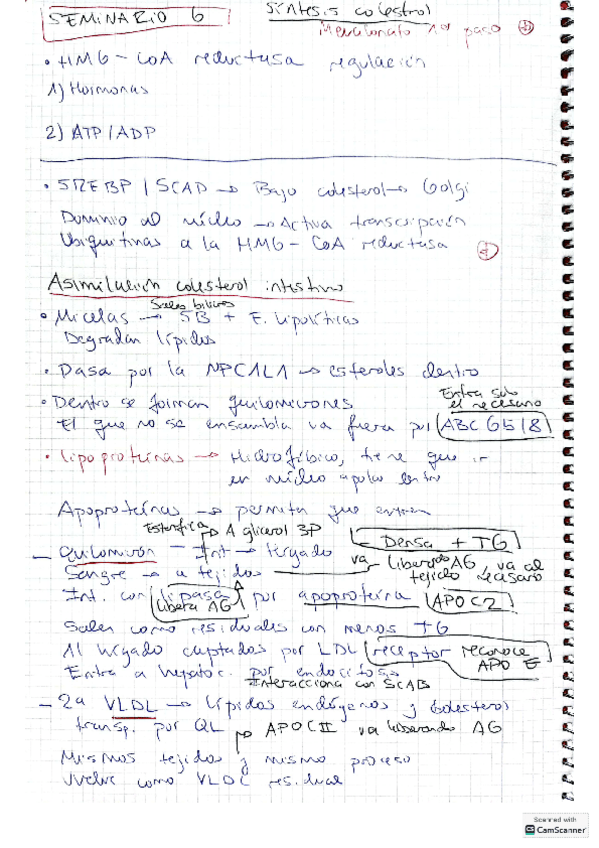 SEMINARIO 6
Síntesis colestrol
Mevalonato 1er paso
• HMG-CoA reductasa regulación
1) Hormonas
2) ATP/ADP
• SREBP/SCAD → Bajo colesterol → Golgi
Dominio al núcleo → Activa transcripción
Ubiquitinas a la HMG-CoA reductasa
Asimilación colesterol intestino
Sales biliares
• Micelas → SB + E. lipolíticas
Degradan lípidos
• Pasa por la NPC1L1 → esteroles dentro
• Dentro se forman quilomicrones
Entra solo el necesario
El que no se ensambla va fuera por ABCG5/8
• Lipoproteínas → Hidrofóbico, tiene que ir
en núcleo apolar dentro
Apoproteínas → permita que entren
Esterifica → A glicerol 3P
Densa + TG
– Quilomicrón – Int → hígado
va liberando AG, va al tejido necesario
Sangre → a tejidos
Int. con lipasa por apoproteína APOC2
libera AG
Salen como residuales con menos TG
Al hígado captados por LDL receptor reconoce APO E
Entra a hepatoc. por endocitosis
Interacciona con SCAB
– 2a VLDL → lípidos endógenos y colesterol
transp. por QL → APOCII va liberando AG
Mismos tejidos y mismo proceso
Vuelve como VLDL residual
Scanned with
CamScanner